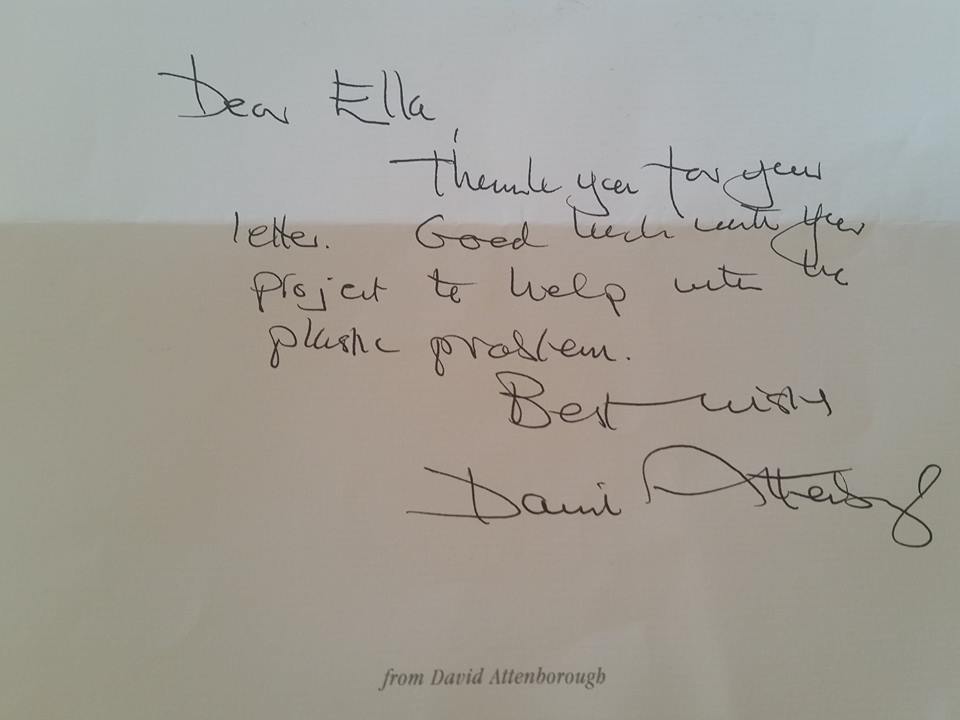 Dear Ella,
Thank you for your
letter. Good luck with your
project to help with the
plastic problem.
Best wishes
David Attenborough
from David Attenborough